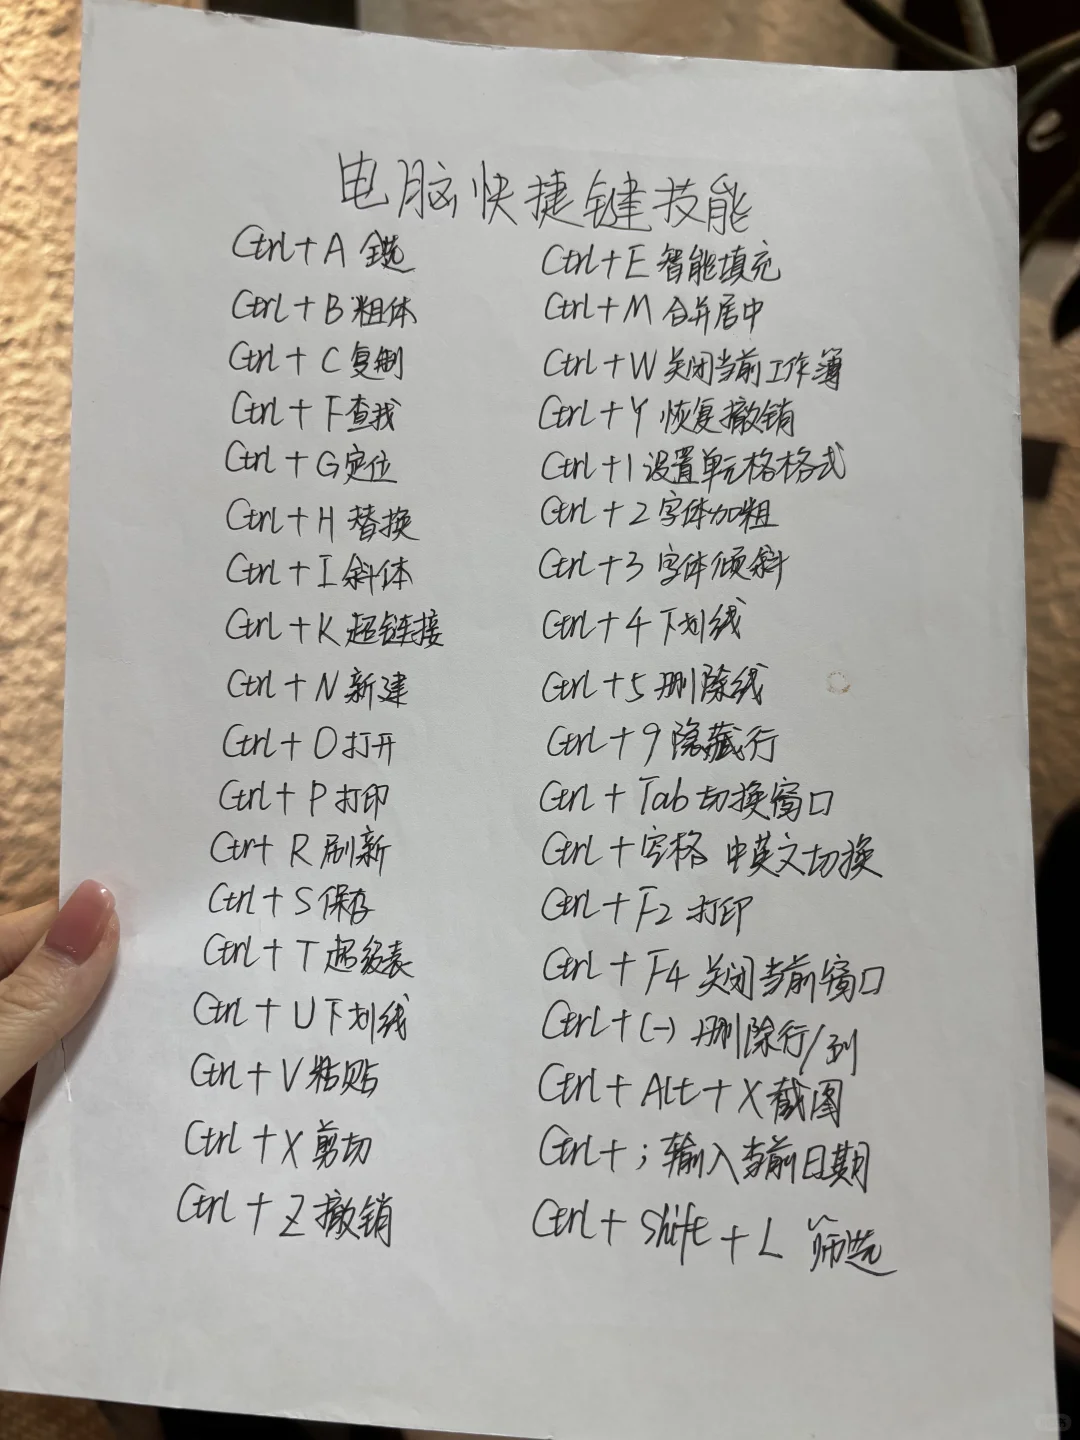 电脑快捷键技能
Ctrl+A 全选
Ctrl+B 粗体
Ctrl+C 复制
Ctrl+F 查找
Ctrl+G 定位
Ctrl+H 替换
Ctrl+I 斜体
Ctrl+K 超链接
Ctrl+N 新建
Ctrl+O 打开
Ctrl+P 打印
Ctr+R 刷新
Ctrl+S 保存
Ctrl+T 超级表
Ctrl+U 下划线
Ctrl+V 粘贴
Ctrl+X 剪切
Ctrl+Z 撤销
Ctrl+E 智能填充
Ctrl+M 合并居中
Ctrl+W 关闭当前工作簿
Ctrl+Y 恢复撤销
Ctrl+1 设置单元格格式
Ctrl+2 字体加粗
Ctrl+3 字体倾斜
Ctrl+4 下划线
Ctrl+5 删除线
Ctrl+9 隐藏行
Ctrl+Tab 切换窗口
Ctrl+空格 中英文切换
Ctrl+F2 打印
Ctrl+F4 关闭当前窗口
Ctrl+(-) 删除行/列
Ctrl+Alt+X 截图
Ctrl+; 输入当前日期
Ctrl+Shift+L 筛选